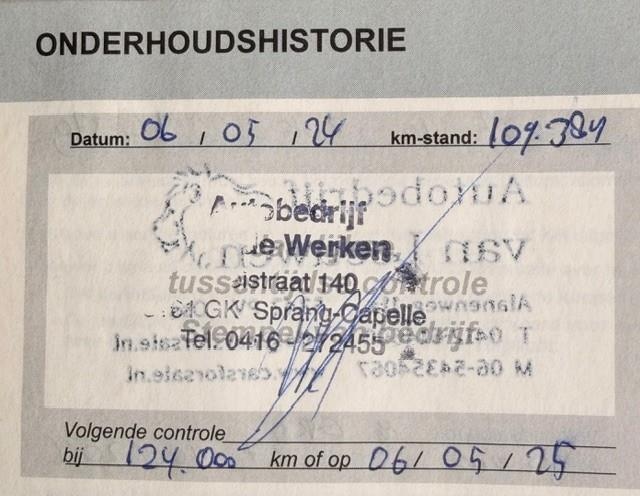 ONDERHOUDSHISTORIE
Datum: 06 / 05 / 24 km-stand: 109.384
Autobedrijf
de Werken
straat 140
GK Sprang-Capelle
tussentijdse controle
Stempel bedrijf
Tel. 0416 - 272455
Autobedrijf
van
T
M 06-54354067
www.carsforsale.nl
Volgende controle
bij 124.000 km of op 06 / 05 / 25